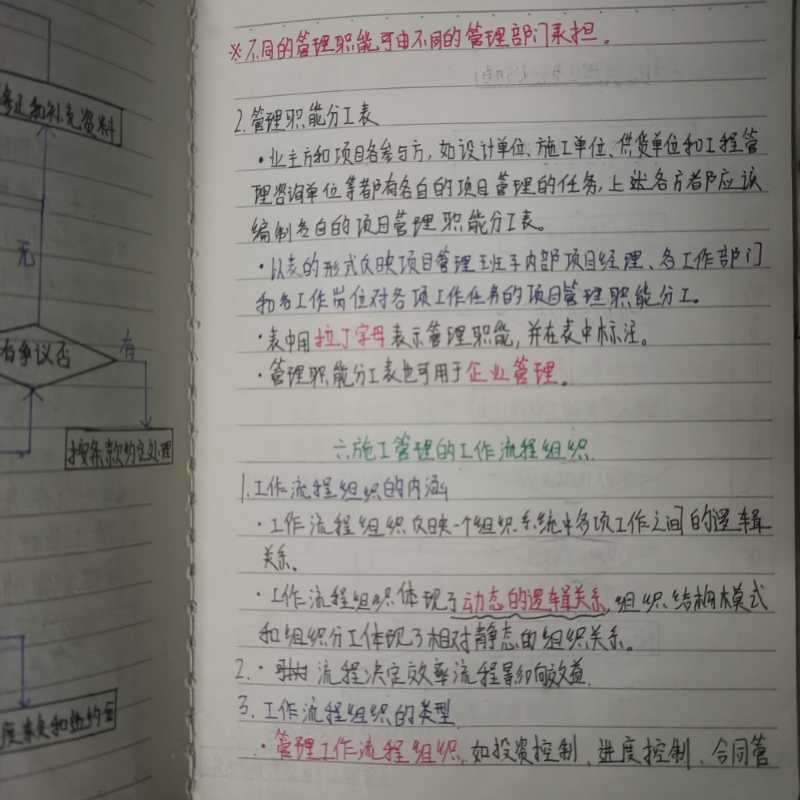 修正和补充资料
无
有争议否
有
按条款约定处理
※不同的管理职能可由不同的管理部门承担。
2.管理职能分工表
·业主方和项目各参与方,如设计单位、施工单位、供货单位和工程管
理咨询单位等都有各自的项目管理的任务,上述各方都应该
编制各自的项目管理职能分工表。
·以表的形式反映项目管理班子内部项目经理、各工作部门
和各工作岗位对各项工作任务的项目管理职能分工。
·表中用拉丁字母表示管理职能,并在表中标注。
·管理职能分工表也可用于企业管理。
六.施工管理的工作流程组织.
1.工作流程组织的内涵
·工作流程组织反映一个组织系统中各项工作之间的逻辑
关系。
·工作流程组织体现了动态的逻辑关系,组织结构模式
和组织分工体现了相对静态的组织关系。
2.·流程决定效率流程影响效益.
3.工作流程组织的类型
·管理工作流程组织,如投资控制、进度控制、合同管